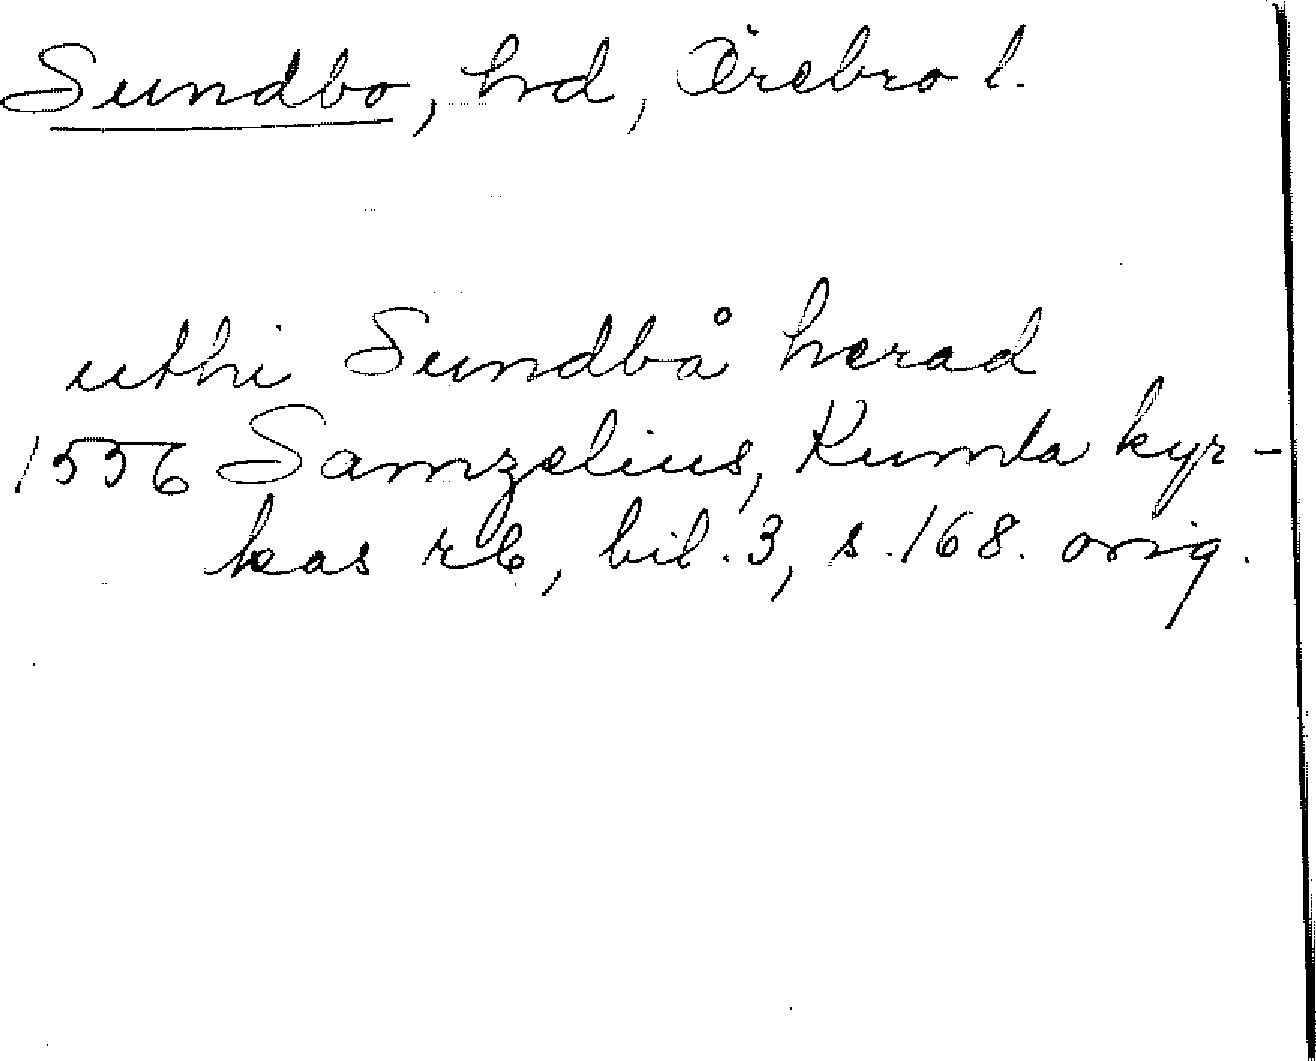 Sundbo, hrd, Örebro l.
uthi Sundbå herad
1556 Samzelius, Kumla kyr-
kas rb, bil. 3, s. 168. orig.